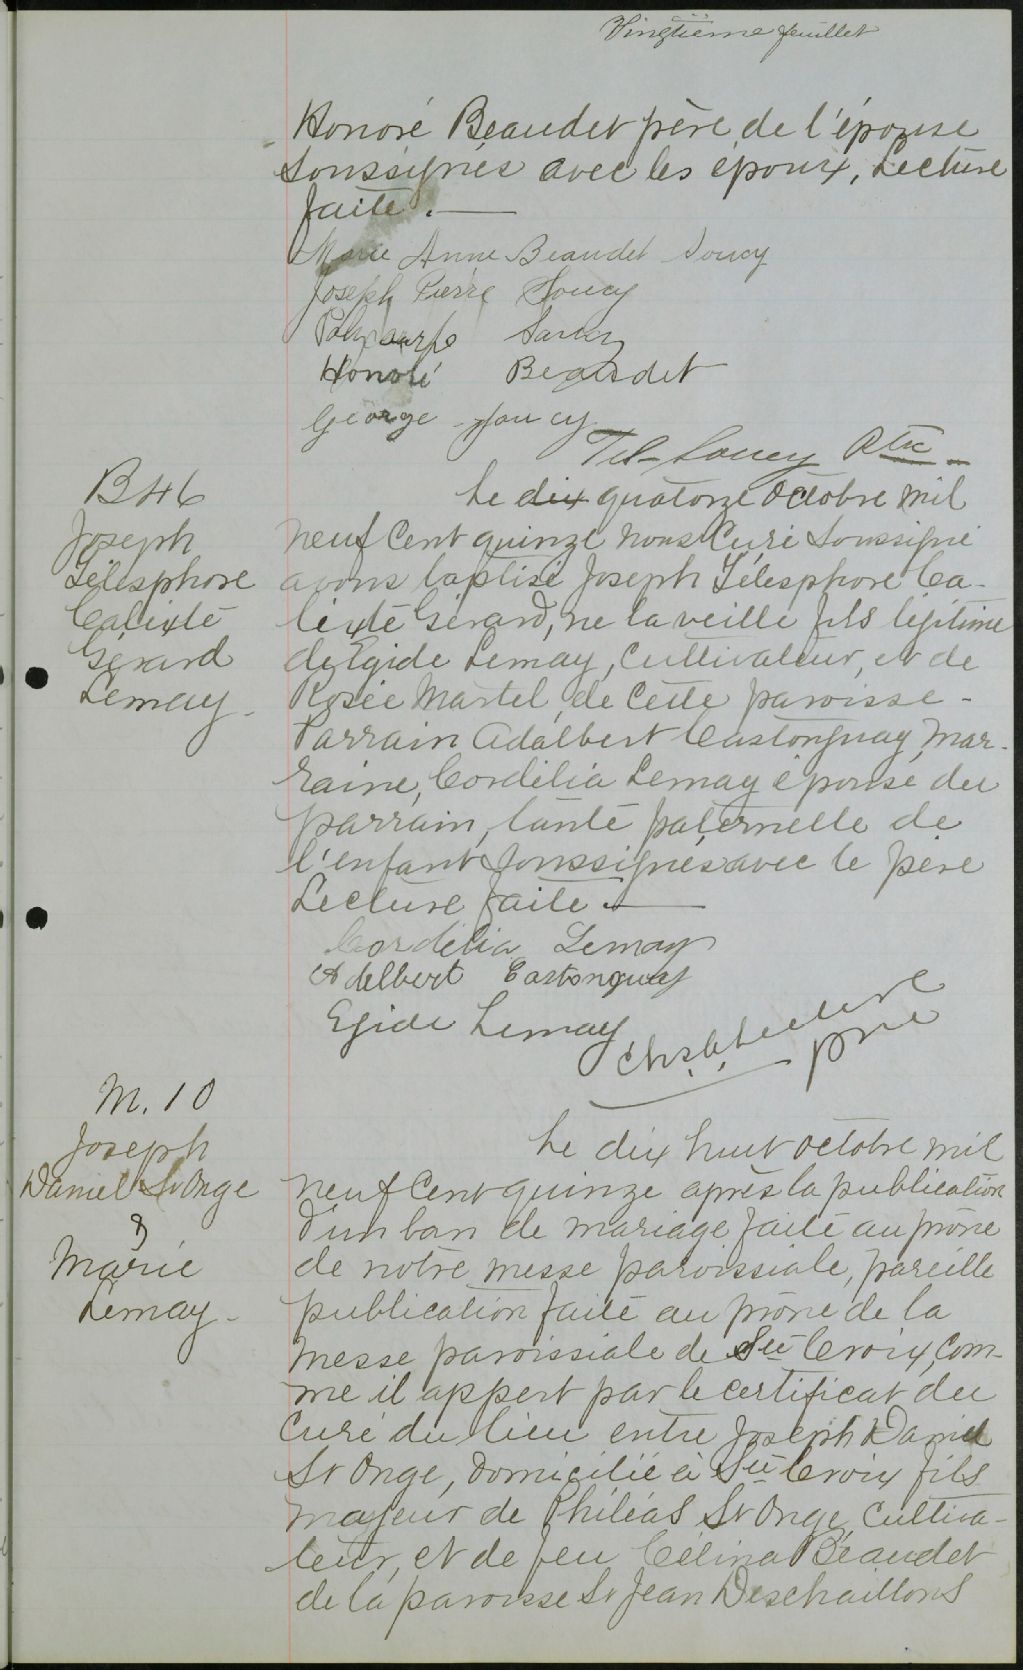 Vingtième feuillet
Honoré Beaudet père de l'épouse
soussignés avec les époux, Lecture
faite.
Marie Anne Beaudet Soucy
Joseph Pierre Soucy
Polycarpe Soucy
Honoré Beaudet
George Soucy
Tel. Soucy Ptre
B 46
Joseph
Télesphore
Calixte
Gérard
Lemay.
Le dix quatorze octobre mil
neuf cent quinze nous Curé soussigné
avons baptisé Joseph Télesphore Ca-
lixte Gérard, né la veille fils légitime
de Egide Lemay, cultivateur, et de
Rosée Martel, de cette paroisse -
Parrain Adalbert Castonguay, Mar-
raine, Cordélia Lemay épouse du
parrain, tante paternelle de
l'enfant soussignés avec le père
Lecture faite.
Cordélia Lemay
Adelbert Castonguay
Egide Lemay
ptre
M. 10
Joseph
Daniel St Onge
&
Marie
Lemay.
Le dix huit octobre mil
neuf cent quinze après la publication
d'un ban de mariage faite au prône
de notre messe paroissiale, pareille
publication faite au prône de la
messe paroissiale de Ste Croix, com-
me il appert par le certificat du
curé du lieu entre Joseph Daniel
St Onge, domicilié à Ste Croix fils
majeur de Philéas St Onge, cultiva-
teur, et de feu Célina Beaudet
de la paroisse St Jean Deschaillons